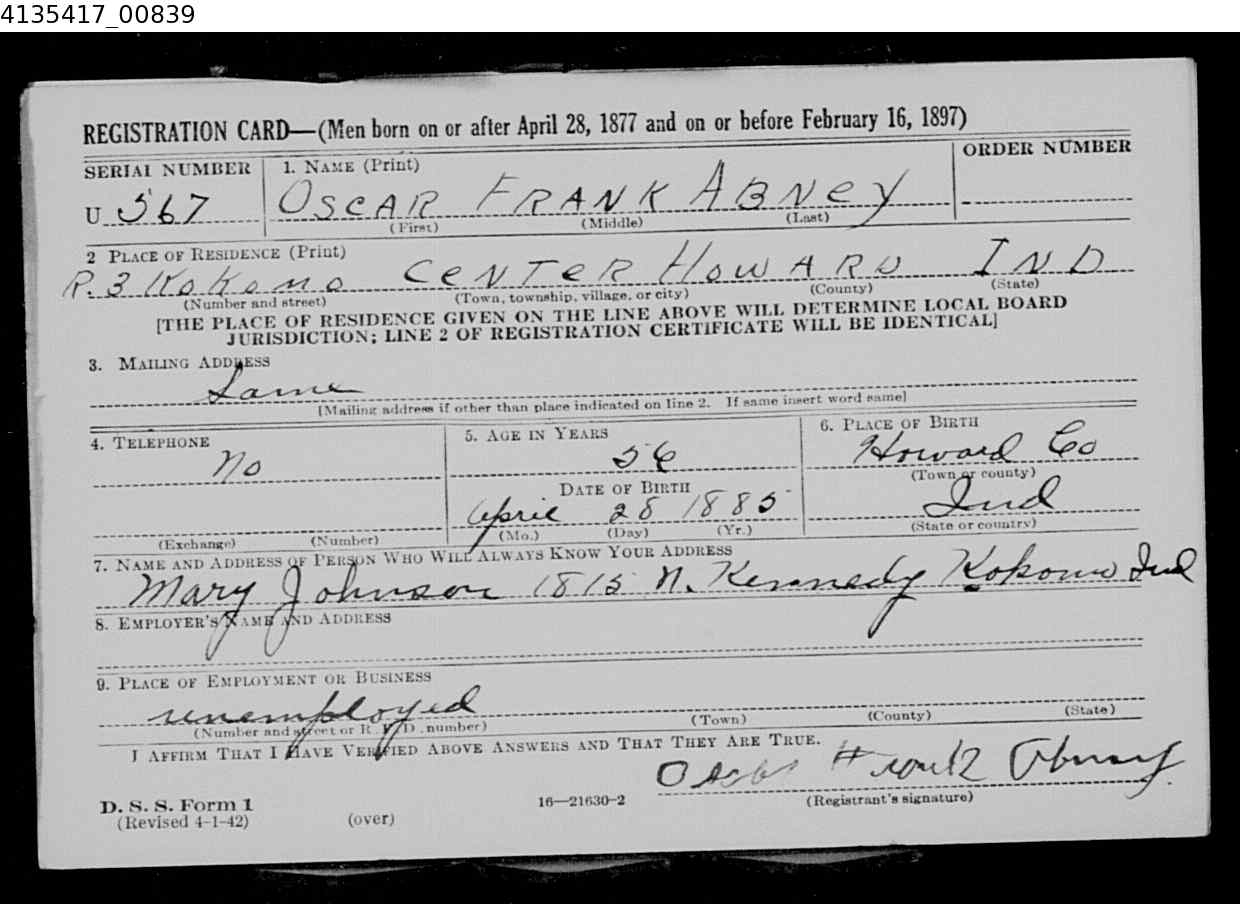 4135417_00839
REGISTRATION CARD—(Men born on or after April 28, 1877 and on or before February 16, 1897)
SERIAL NUMBER 1. NAME (Print) ORDER NUMBER
U 567 OSCAR FRANK ABNEY
(First) (Middle) (Last)
2 PLACE OF RESIDENCE (Print)
R. 3 Kokomo CENTER HOWARD IND
(Number and street) (Town, township, village, or city) (County) (State)
[THE PLACE OF RESIDENCE GIVEN ON THE LINE ABOVE WILL DETERMINE LOCAL BOARD
JURISDICTION; LINE 2 OF REGISTRATION CERTIFICATE WILL BE IDENTICAL]
3. MAILING ADDRESS
Same
[Mailing address if other than place indicated on line 2. If same insert word same]
4. TELEPHONE 5. AGE IN YEARS 6. PLACE OF BIRTH
No 56 Howard Co
(Town or county)
DATE OF BIRTH
April 28 1885 Ind
(Exchange) (Number) (Mo.) (Day) (Yr.) (State or country)
7. NAME AND ADDRESS OF PERSON WHO WILL ALWAYS KNOW YOUR ADDRESS
Mary Johnson 1815 N. Kennedy Kokomo Ind
8. EMPLOYER'S NAME AND ADDRESS
9. PLACE OF EMPLOYMENT OR BUSINESS
unemployed
(Number and street or R. F. D. number) (Town) (County) (State)
I AFFIRM THAT I HAVE VERIFIED ABOVE ANSWERS AND THAT THEY ARE TRUE.
Oscar Frank Abney
D. S. S. Form 1 16—21630-2 (Registrant's signature)
(Revised 4-1-42) (over)